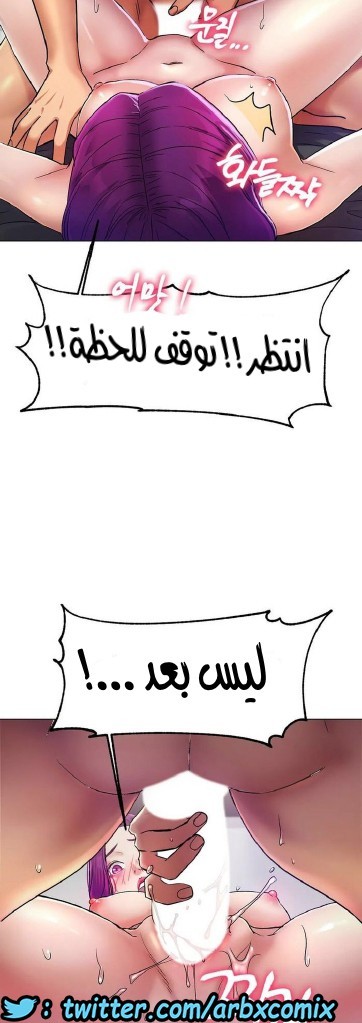 문질...
화들짝
어맛!
انتظر!! توقف للحظة!!
ليس بعد ...!
: twitter.com/arbxcomix